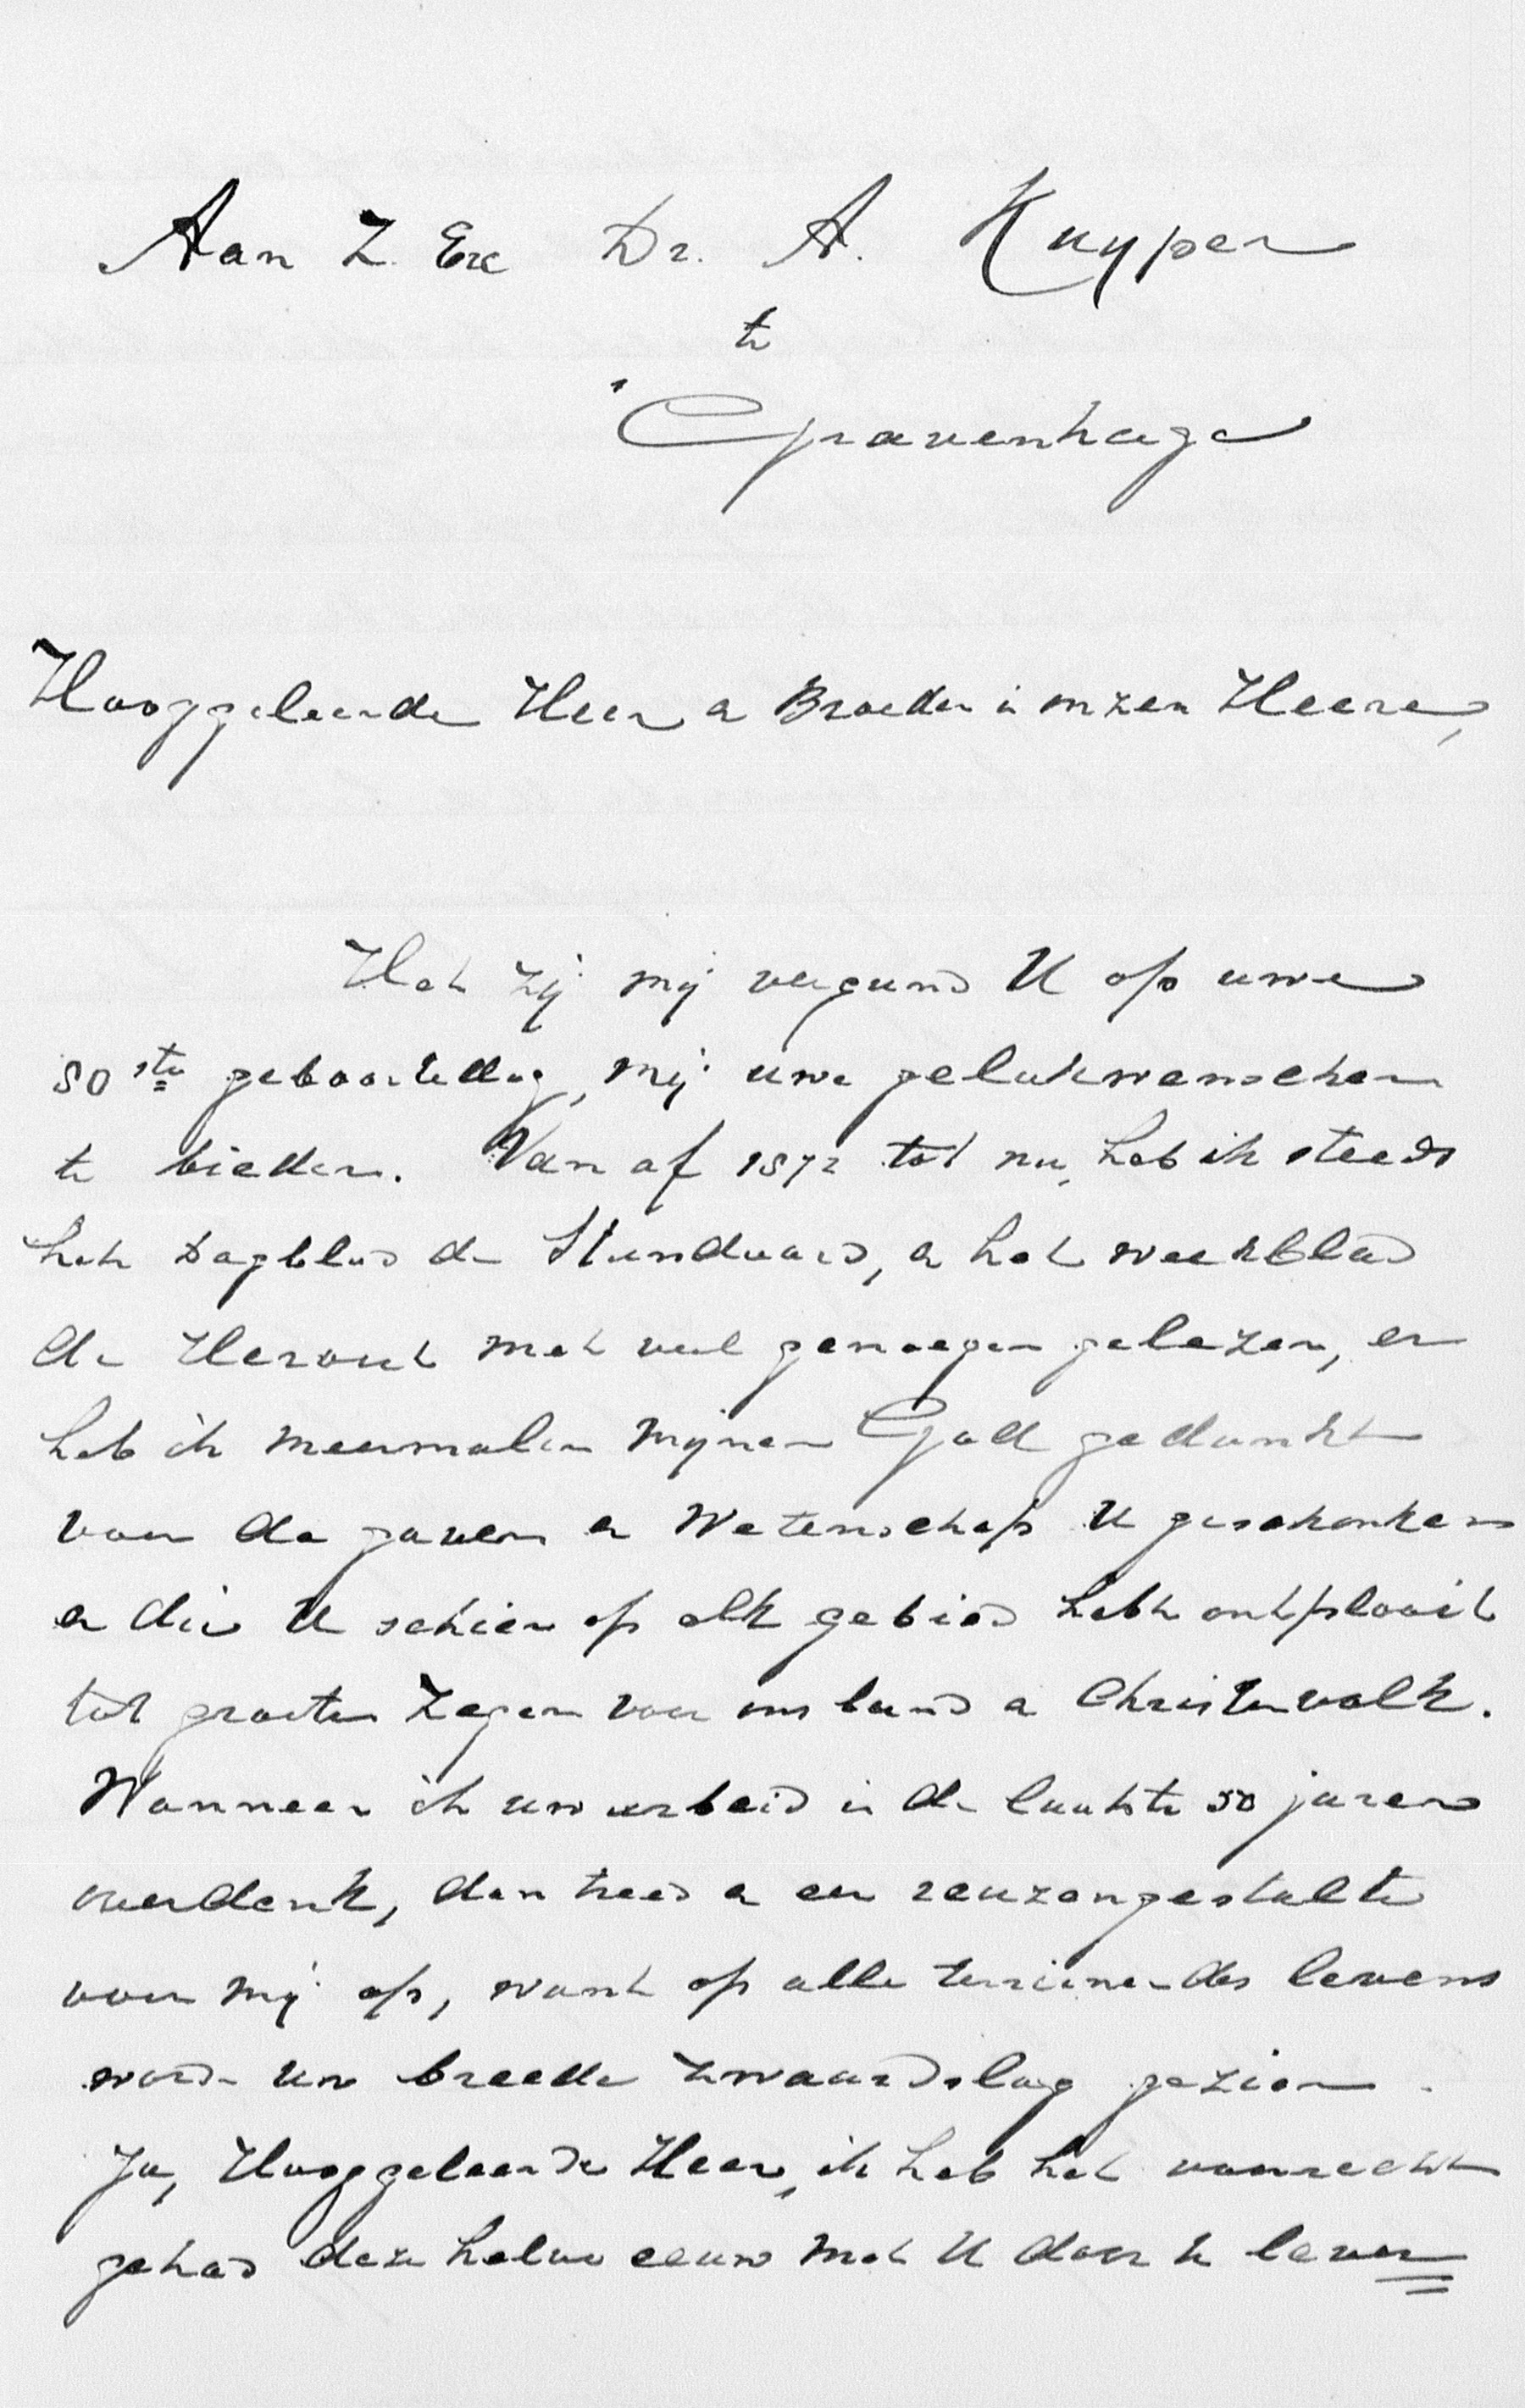 Aan Z. Exc Dr. A. Kuyper
te
'Gravenhage
Hooggeleerde Heer en Broeder in onzen Heere,
Het zij mij vergund U op uwe
80ste geboortedag, mij uwe gelukwenschen
te bieden. Van af 1872 tot nu, heb ik steeds
het Dagblad de Standaard, en het weekblad
de Heraut met veel genoegen gelezen, en
heb ik meermalen mijnen God gedankt
voor de gaven en Wetenschap U geschonken
en die U schier op elk gebied hebt ontplooid
tot grooten Zegen voor ons land en Christenvolk.
Wanneer ik uw arbeid in de laatste 50 jaren
overdenk, dan treed er een reuzengestalte
voor mij op, want op alle terreinen des levens
werd uw breede zwaardslag gezien.
Ja, Hooggeleerde Heer, ik heb het voorrecht
gehad deze halve eeuw met U door te leven